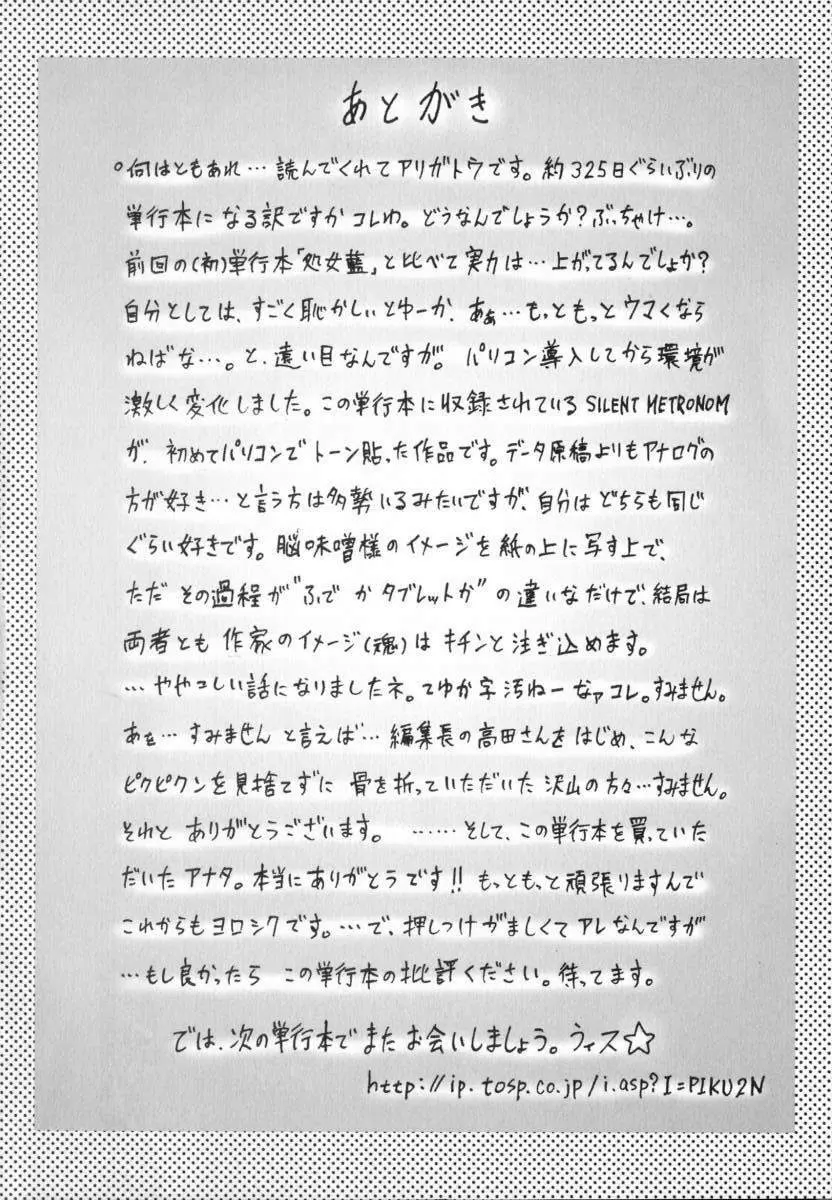 あとがき
。何はともあれ…読んでくれてアリガトウです。約325日ぐらいぶりの
単行本になる訳ですかコレわ。どうなんでしょうか?ぶっちゃけ…。
前回の(初)単行本「処女藍」と比べて実力は…上がってるんでしょか?
自分としては、すごく恥かしいとゆーか、あぁ…もっともっとウマくなら
ねばな…。と、遠い目なんですが。パソコン導入してから環境が
激しく変化しました。この単行本に収録されているSILENT METRONOM
が、初めてパソコンでトーン貼った作品です。データ原稿よりもアナログの
方が好き…と言う方は多勢いるみたいですが、自分はどちらも同じ
ぐらい好きです。脳味噌様のイメージを紙の上に写す上で、
ただ その過程が"ふでかタブレットか"の違いなだけで、結局は
両者とも 作家のイメージ(魂)はキチンと注ぎ込めます。
…ややこしい話になりましたネ。てゆか字汚ねーなァコレ。すみません。
あぁ…すみませんと言えば…編集長の高田さんをはじめ、こんな
ピクピクンを見捨てずに 骨を折っていただいた沢山の方々…すみません。
それと ありがとうございます。 ……そして、この単行本を買っていた
だいたアナタ。本当にありがとうです!! もっともっと頑張りますんで
これからもヨロシクです。…で、押しつけがましくてアレなんですが
…もし良かったら この単行本の批評ください。待ってます。
では、次の単行本でまたお会いしましょう。ウィス☆
http://ip.tosp.co.jp/i.asp?I=PIKU2N